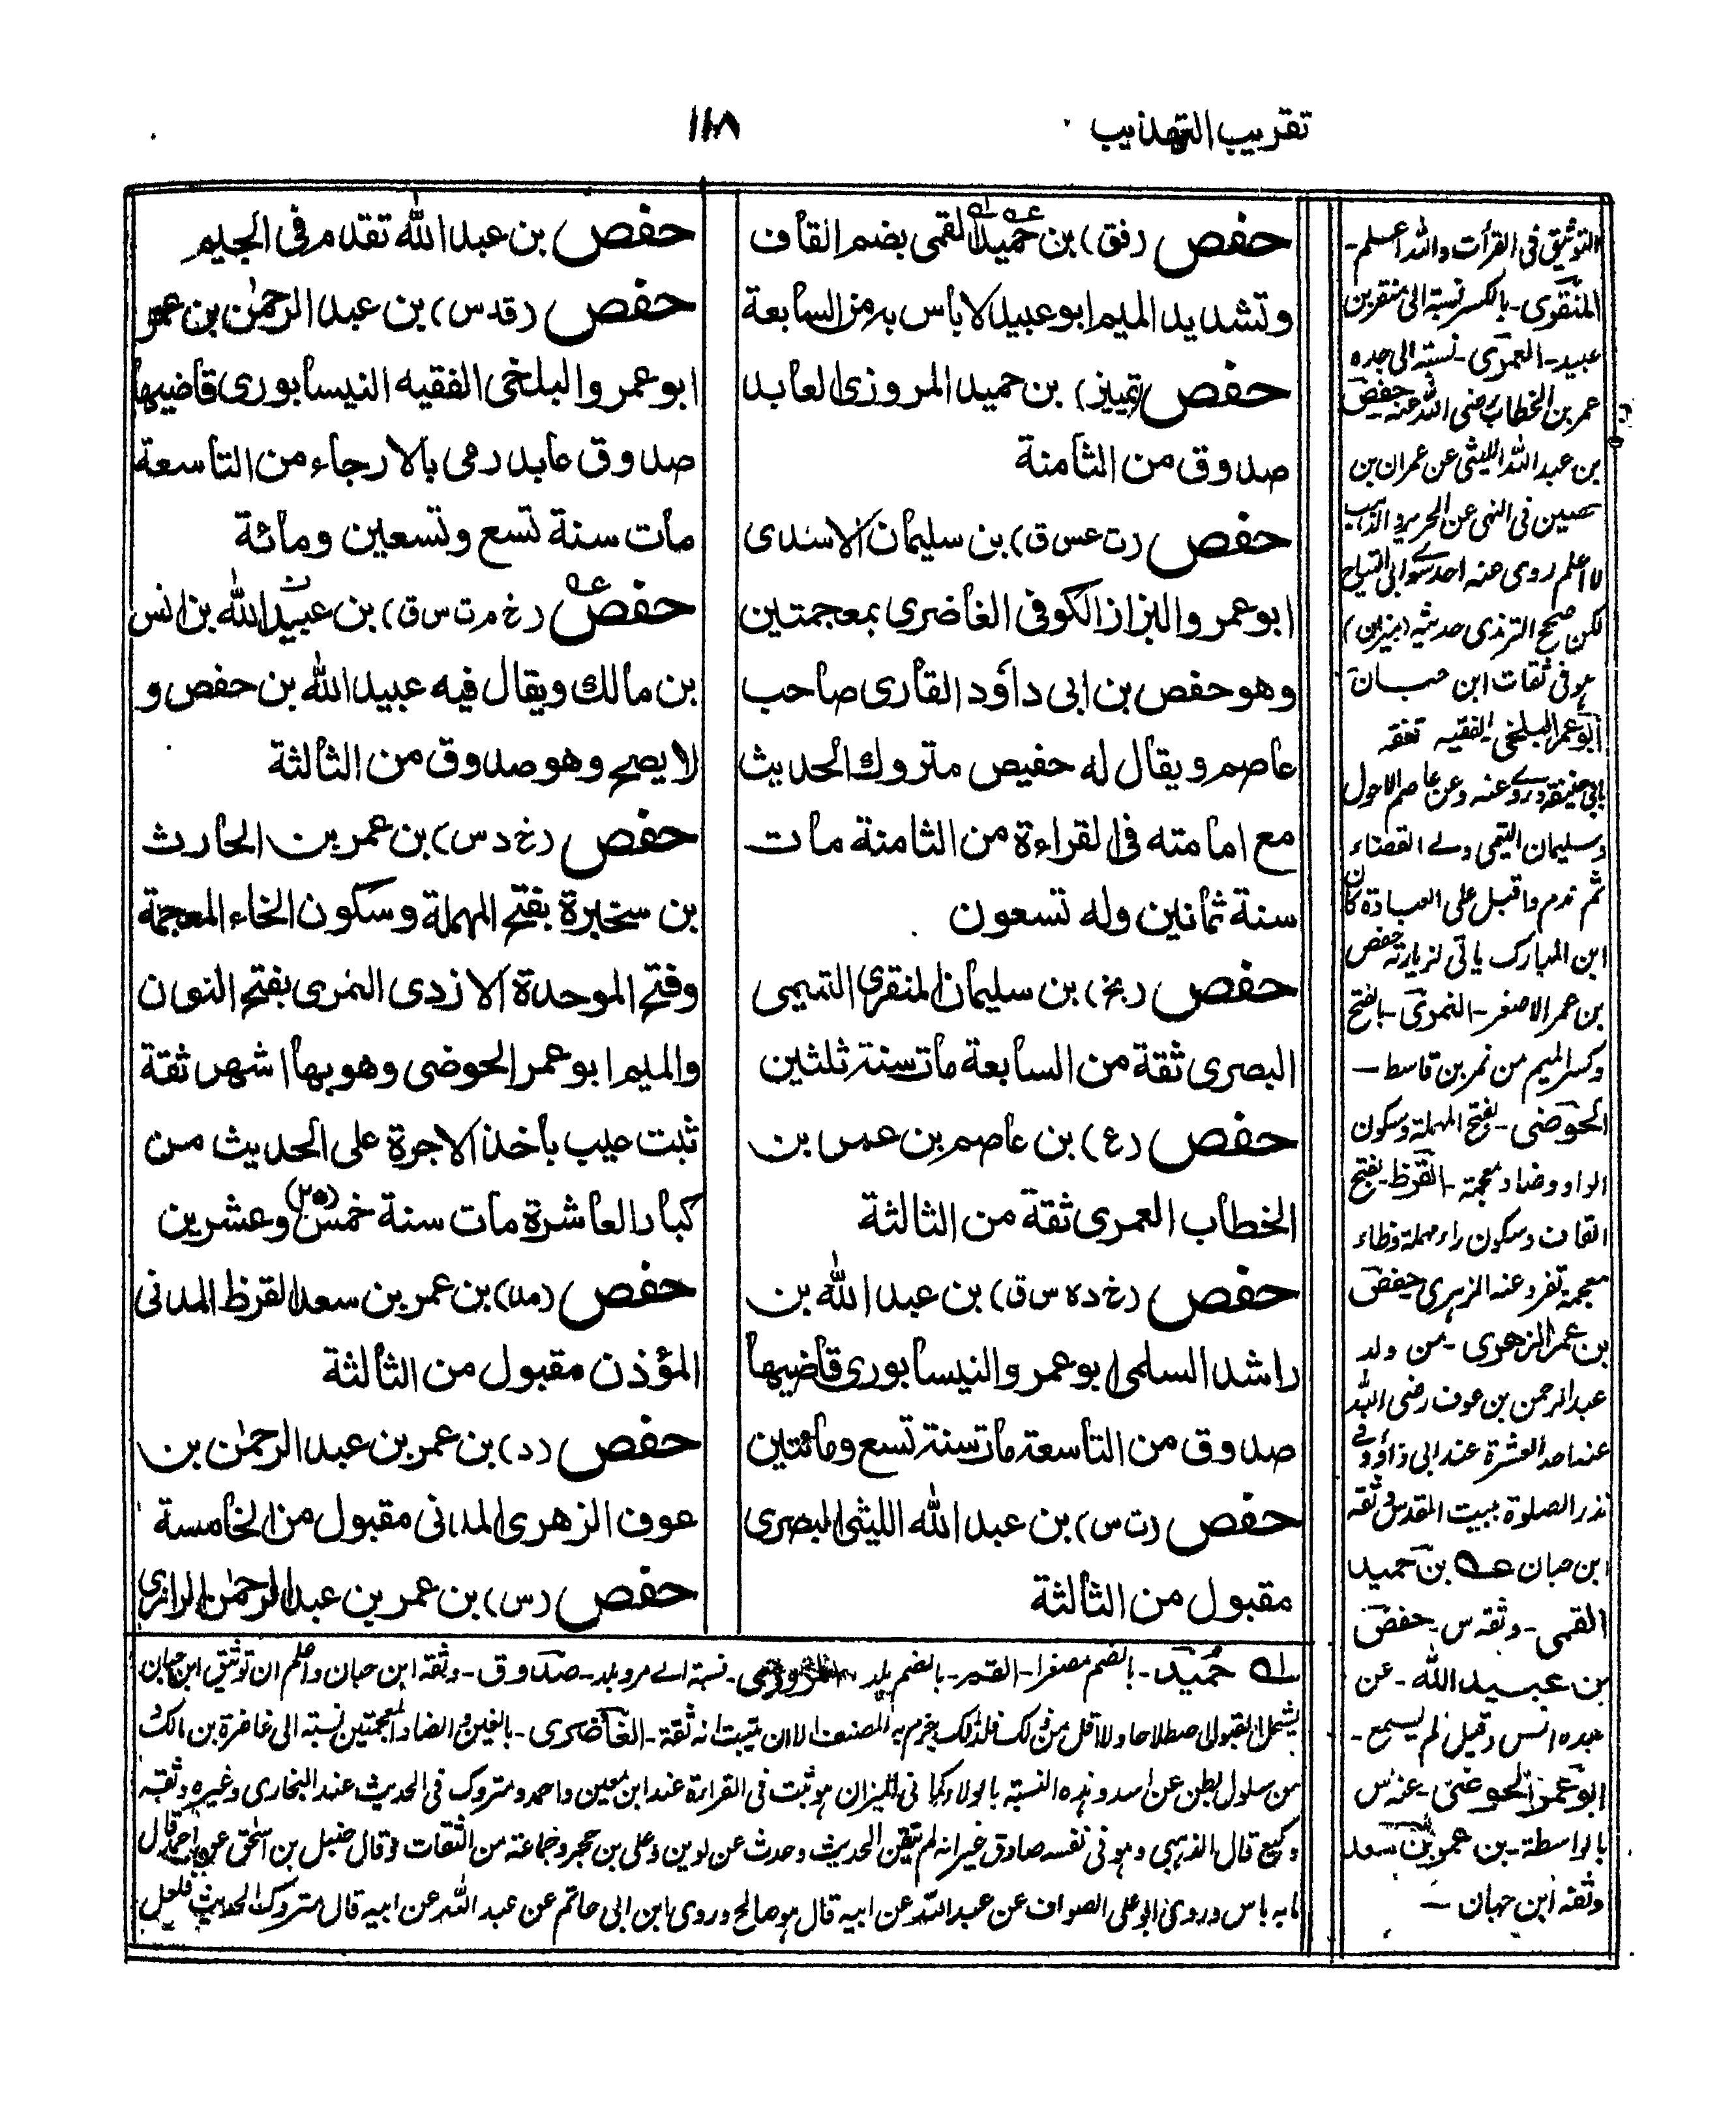 تقريب التهذيب
١١٨
حفص (فق) بن حميد القمى بضم القاف
وتشديد الميم ابو عبيد لا باس به من السابعة
حفص (تمييز) بن حميد المروزى العابد
صدوق من الثامنة
حفص (ت عس ق) بن سليمان الاسدى
ابو عمر و البزاز الكوفى الغاضرى بمعجمتين
وهو حفص بن ابى داؤد القارى صاحب
عاصم ويقال له حفيص متروك الحديث
مع امامته فى القراءة من الثامنة مات
سنة ثمانين وله تسعون
حفص (بخ) بن سليمان المنقرى التميمى
البصرى ثقة من السابعة مات سنة ثلثين
حفص (ع) بن عاصم بن عمر بن
الخطاب العمرى ثقة من الثالثة
حفص (خ د ه س ق) بن عبد الله بن
راشد السلمى ابو عمر و النيسابورى قاضيها
صدوق من التاسعة مات سنة تسع ومائتين
حفص (ت س) بن عبد الله الليثى البصرى
مقبول من الثالثة
حفص بن عبد الله تقدم فى الجيم
حفص (قد س) بن عبد الرحمٰن بن عمر
ابو عمر و البلخى الفقيه النيسابورى قاضيها
صدوق عابد رمى بالارجاء من التاسعة
مات سنة تسع وتسعين ومائة
حفص (خ م ت س ق) بن عبيد الله بن انس
بن مالك ويقال فيه عبيد الله بن حفص و
لا يصح وهو صدوق من الثالثة
حفص (خ د س) بن عمر بن الحارث
بن سخبرة بفتح المهملة وسكون الخاء المعجمة
وفتح الموحدة الازدى النمرى بفتح النون
والميم ابو عمر الحوضى وهو بها اشهر ثقة
ثبت عيب باخذ الاجرة على الحديث من
كبار العاشرة مات سنة خمس (٢٥) وعشرين
حفص (مد) بن عمر بن سعد القرظ المدنى
المؤذن مقبول من الثالثة
حفص (د) بن عمر بن عبد الرحمٰن بن
عوف الزهرى المدنى مقبول من الخامسة
حفص (س) بن عمر بن عبد الرحمٰن الرازى
التوثيق فى القرأت والله اعلم -
المنقرى - بالكسر نسبة الى منقر بن
عبيد - العمرى - نسبة الى جده
عمر بن الخطاب رضى الله عنه - حفص
بن عبد الله الليثى عن عمران بن
حصين فى النهى عن الحرير و الذهب
لا اعلم روى عنه احد سوى ابى التياح
لكن صحح الترمذى حديثه (ميزان)
هو فى ثقات ابن حبان
ابو عمر البلخى الفقيه تفقه
بابى حنيفة وروى عنه وعن عاصم الاحول
وسليمان التيمى ولى القضاء
ثم ندم واقبل على العبادة كان
ابن المبارك ياتى لزيارته حفص
بن عمر الاصغر - النمرى - بالفتح
وكسر الميم من نمر بن قاسط -
الحوضى - بفتح المهملة وسكون
الواو وضاد معجمة - القرظ - بفتح
القاف وسكون راء مهملة وظاء
معجمة تفرد عنه الزهرى حفص
بن عمر الزهرى - من ولد
عبد الرحمن بن عوف رضى الله
عنه احد العشرة عند ابى داؤد فى
نذر الصلوة ببيت المقدس وثقه
ابن حبان عه بن حميد
القمى - وثقه س - حفص
بن عبيد الله - عن
جده انس وقيل لم يسمع -
ابو عمر الحوضى - عنه س
بالواسطة - بن عمر بن سعد
وثقه ابن حبان -
له حُميد - بالضم مصغرا - القمى - بالضم بلد - المروزى - نسبة الى مرو بلد - صدوق - وثقه ابن حبان واعلم ان توثيق ابن حبان
يشمل المقبول اصطلاحا ولا اقل من ذلك فلذلك لم يجزم به المصنف الا ان يثبت انه ثقة - الغاضرى - بالغين و الضاد المعجمتين نسبة الى غاضرة بن مالك
من سلول بطن عن اسد وهذه النسبة بالولاء كما فى الميزان هو ثبت فى القراءة عند ابن معين واحمد ومتروك فى الحديث عند البخارى وغيره وثقه
وكيع قال الذهبى وهو فى نفسه صادق غير انه لم يتقن الحديث وحدث عن لوين وعلى بن حجر وجماعة من الثقات وقال حنبل بن اسحق عن احمد قال
ما به باس وروى ابو على الصواف عن عبد الله عن ابيه قال هو صالح وروى ابن ابى حاتم عن عبد الله عن ابيه قال متروك الحديث فلعل